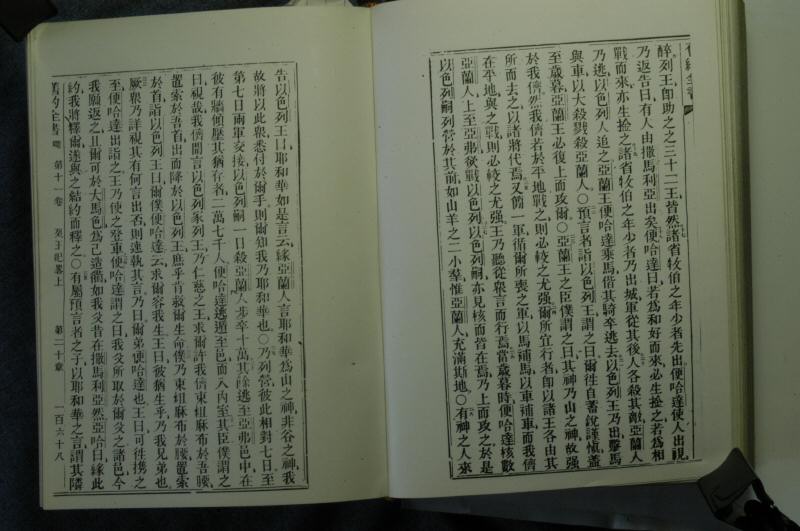 舊約全書
醉列王卽助之之三十二王皆然諸省牧伯之年少者先出便哈達使人出視
乃返告曰有人由撒馬利亞出矣便哈達曰若爲和好而來必生捡之若爲相
戰而來亦生捡之諸省牧伯之年少者乃出城軍從其後人各殺其敵亞蘭人
乃逃以色列人追之亞蘭王便哈達乘馬偕其騎卒逃去以色列王乃出擊馬
與車以大殺戮殺亞蘭人○預言者詣以色列王謂之曰爾徃自蓄銳謹愼盖
至歲暮亞蘭王必復上而攻爾○亞蘭王之臣僕謂之曰其神乃山之神故强
於我儕然我儕若於平地戰之則必較之尤强爾所宜行者卽以諸王各由其
所而去之以諸將代焉又飭一軍循爾所喪之軍以馬補馬以車補車而我儕
在平地與之戰則必較之尤强王乃聽從衆言而行焉當歲暮時便哈達核數
亞蘭人上至亞弗欲戰以色列以色列嗣亦見核而皆在焉乃上而攻之於是
以色列嗣列營於其前如山羊之二小羣惟亞蘭人充滿斯地○有神之人來
告以色列王曰耶和華如是言云緣亞蘭人言耶和華爲山之神非谷之神我
故將以此衆悉付於爾手則爾知我乃耶和華也○乃列營彼此相對七日至
第七日兩軍交接以色列嗣一日殺亞蘭人步卒十萬其餘逃至亞弗邑中在
彼有牆傾壓其猶存者二萬七千人便哈達逃遁至邑而入內室其臣僕謂之
曰視哉我儕聞言以色列家列王乃仁慈之王求爾許我儕束組麻布於吾腰
置索於吾首出而降於以色列王庶乎肯救爾生命僕乃束組麻布於腰置索
於首詣以色列王曰爾僕便哈達云求爾容我生王曰彼猶生乎乃我兄弟也
厥衆乃詳視其有何言出否則連執其言乃曰爾弟便哈達也王曰可徃携之
至便哈達出詣之王乃使之登車便哈達謂之曰我父所取於爾父之諸邑今
我願返之且爾可於大馬色爲己造衢如我父昔在撒馬利亞然亞哈曰緣此
約我將釋爾遂與之結約而釋之○有屬預言者之子以耶和華之言謂其隣
舊約全書 第十一卷 列王紀畧上 第二十章 一百六十八